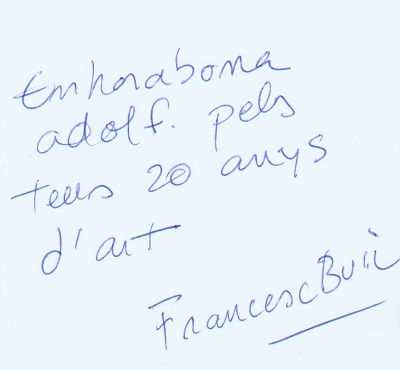 Enhorabona
adolf. pels
teus 20 anys
d'art
Francesc Buïl